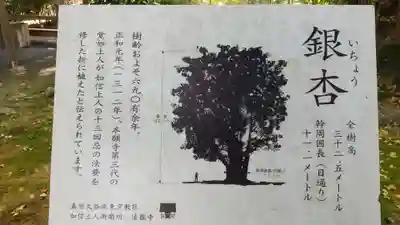 銀杏
いちょう
全樹高
三十二・五メートル
幹周囲長(目通り)
十一・一メートル
樹齢およそ六九〇有余年。
正和元年(一三一二年)、本願寺第三代の
覚如上人が如信上人の十三回忌の法要を
修した折に植えたと伝えられています。
真宗大谷派東京教区
如信上人御廟所 法龍寺